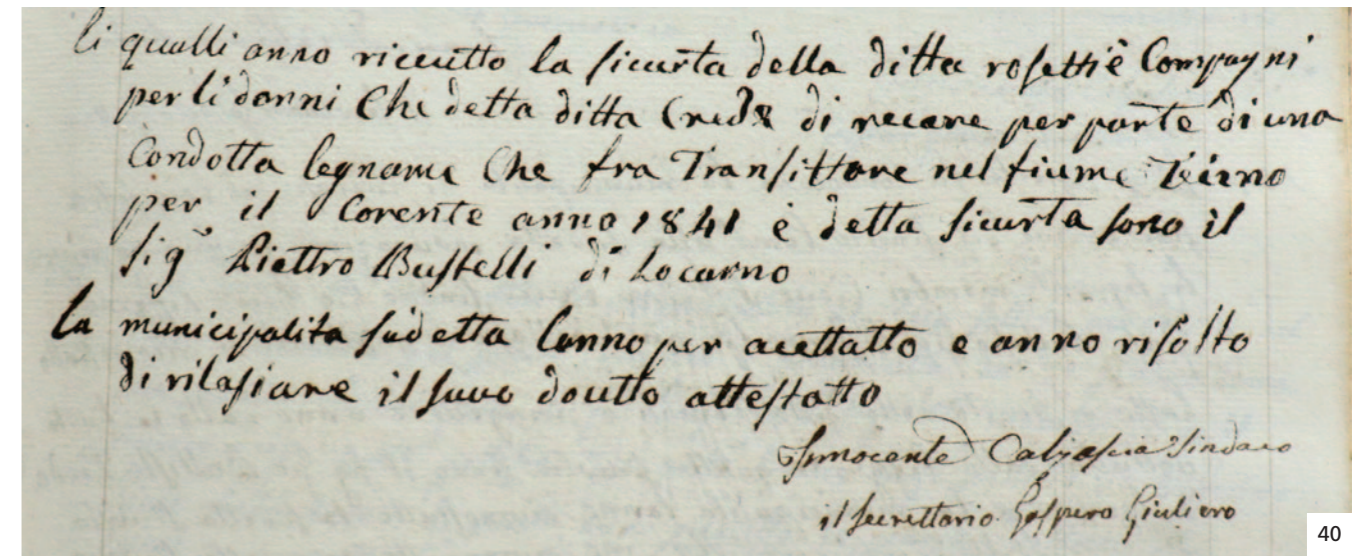 li qualli anno riceutto la sicurta della ditta rosetti è Compagni
per li danni Che detta ditta Crede di recare per parte di una
Condotta legname Che fra Transittare nel fiume Ticino
per il Corente anno 1841 è detta sicurta sono il
sigr Piettro Bustelli di Locarno
la municipalita sudetta lanno per acettatto e anno risolto
di rilasiare il suvo doutto attestatto
Innocente Calzascia Sindaco
il Secrettario Gaspero Giuliero
40